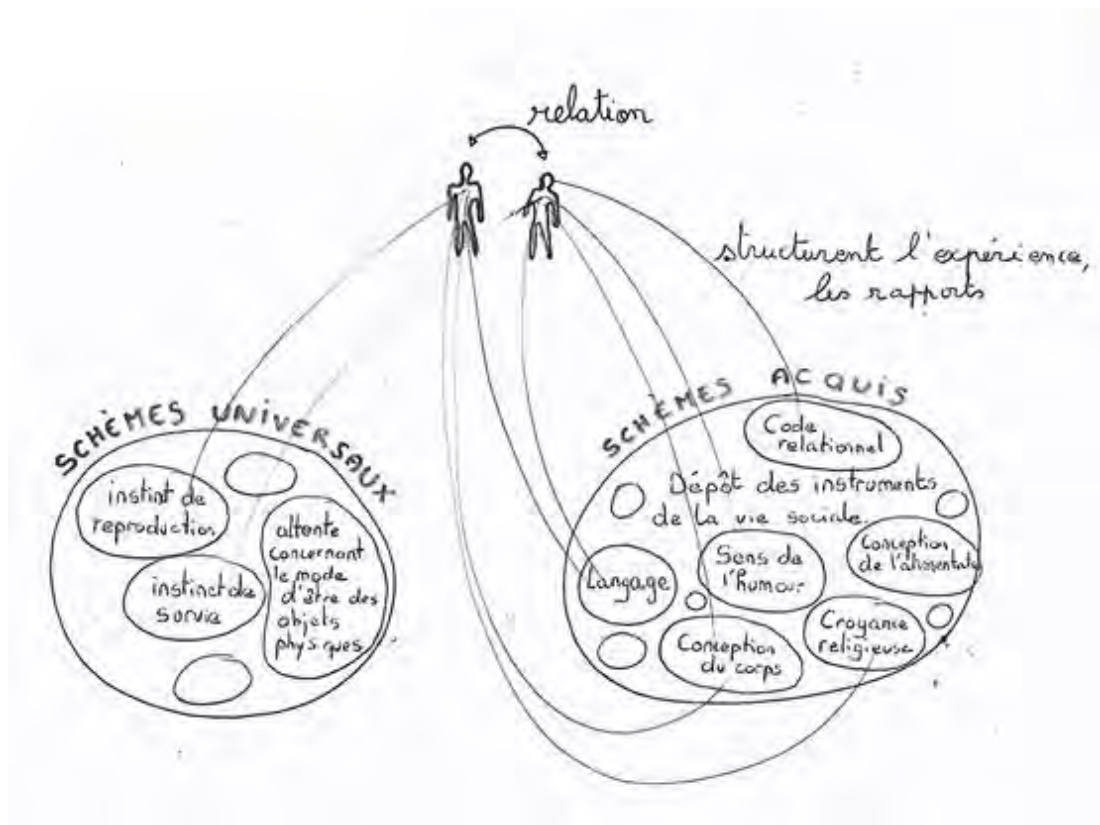 relation
structurent l'expérience,
les rapports
SCHÈMES UNIVERSAUX
instint de
reproduction
instinct de
survie
attente
concernant
le mode
d'être des
objets
physiques
SCHÈMES ACQUIS
Code
relationnel
Dépôt des instruments
de la vie sociale.
Langage
Sens de
l'humour
Conception
Conception
du corps
Croyance
religieuse